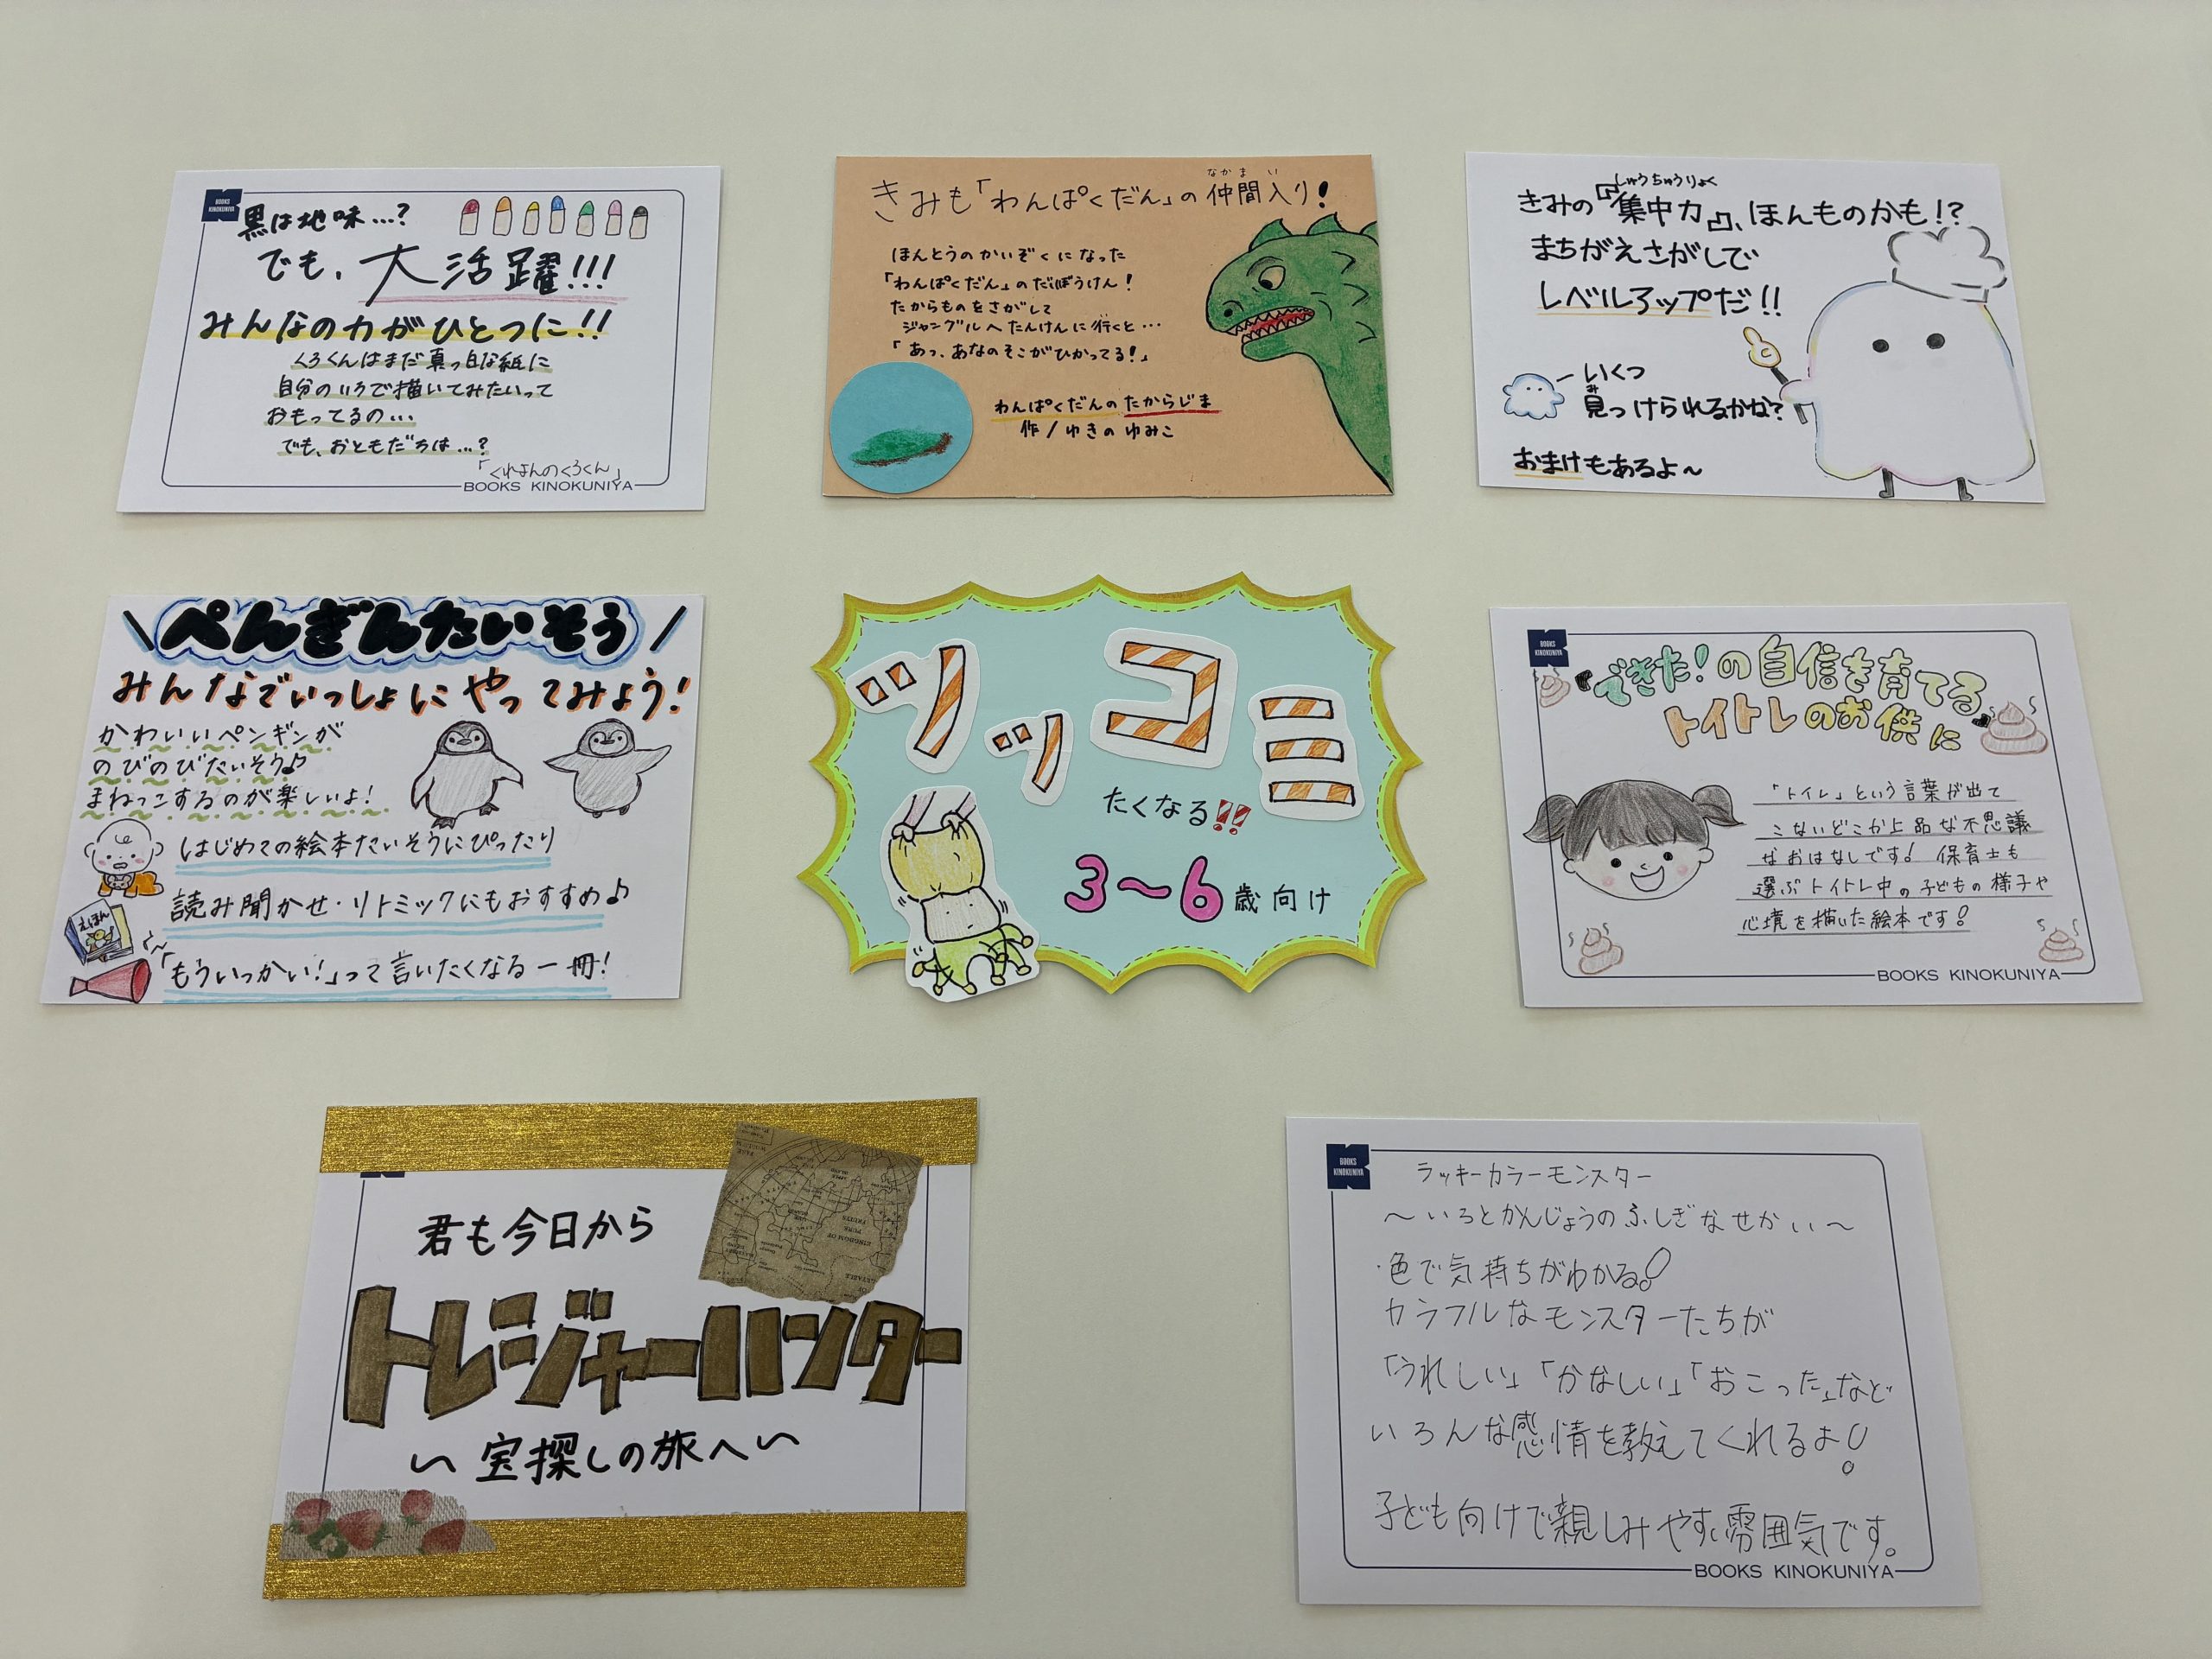 BOOKS
KINOKUNIYA
黒は地味…?
でも、大活躍!!!
みんなの力がひとつに!!
くろくんはまだ真っ白な紙に
自分のいろで描いてみたいって
おもってるの…
でも、おともだちは…?
「くれよんのくろくん」
BOOKS KINOKUNIYA
なかまい
きみも「わんぱくだん」の仲間入り!
ほんとうのかいぞくになった
「わんぱくだん」のだいぼうけん!
たからものをさがして
ジャングルへたんけんに行くと…
「あっ、あなのそこがひかってる!」
わんぱくだんのたからじま
作/ゆきのゆみこ
しゅうちゅうりょく
きみの『集中力』、ほんものかも!?
まちがえさがしで
レベルアップだ!!
いくつ
み
見つけられるかな?
おまけもあるよ~
\ぺんぎんたいそう/
みんなでいっしょにやってみよう!
かわいいペンギンが
のびのびたいそう♪
まねっこするのが楽しいよ!
はじめての絵本たいそうにぴったり
えほん
読み聞かせ・リトミックにもおすすめ♪
「もういっかい!」って言いたくなる一冊!
ツッコミ
たくなる!!
3~6歳向け
BOOKS
KINOKUNIYA
「できた!の自信を育てる
トイトレのお供に」
「トイレ」という言葉が出て
こないどこか上品な不思議
なおはなしです! 保育士も
選ぶトイトレ中の子どもの様子や
心境を描いた絵本です!
BOOKS KINOKUNIYA
君も今日から
トレジャーハンター
~宝探しの旅へ~
BOOKS
KINOKUNIYA
ラッキーカラーモンスター
~いろとかんじょうのふしぎなせかい~
・色で気持ちがわかる!
カラフルなモンスターたちが
「うれしい」「かなしい」「おこった」など
いろんな感情を教えてくれるよ!
子ども向けで親しみやすい雰囲気です。
BOOKS KINOKUNIYA